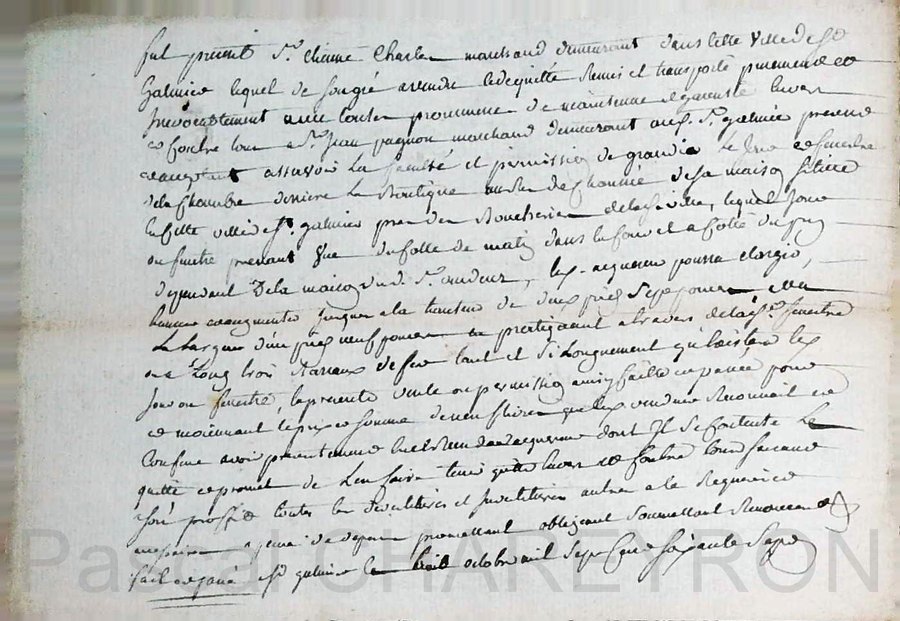 fut present Sr. Etienne Charles marchand demeurant dans cette Ville de St
Galmier lequel de son gré a vendu cedé quitté remis et transporté purement et
Irrevocablement avec toutes promesses de maintenue et garentie envers
et contre tous a Sr. Jean pagnon marchand demeurant aud. St. galmier present
acceptant assavoir La faculté et permission de grandir Le Jour et fenetre
de la chambre derriere La Boutique de sa maison située
en cette ville de St. galmier pres des Boucheries de lad. ville, lequel Jour
ou fenetre prenant du Cotté de matin dans la Cour et a Cotté du
dependant de la maison dud. Sr. vendeur, led. acquereur pourra elargir,
hausser et augmenter Jusques a la hauteur de deux pieds sept pouces et
La largeur d'un pied neuf pouces en pratiquant a travers de lad. fenetre
trois Barraux de fer tant et si Longuement qu'existera led.
Jour ou fenetre, la presente vente ou permission ainsy faitte en passée pour
et moiennant le prix et somme de neuf livres que led. vendeur Reconnait et
Confesse avoir presentement Receu dud. acquereur dont Il se Contente Le
quitte et promet de L'en faire tenir quitte envers et Contre tous faisant
a son proffit toutes les devetitures et Investitures autres a la Requerir et
necessaires a peine de depens promettant obligeant soumettant Renonceant &
fait et passé a St. galmier Le huit octobre mil sept Cent soixante sept
Pascal CHAREYRON